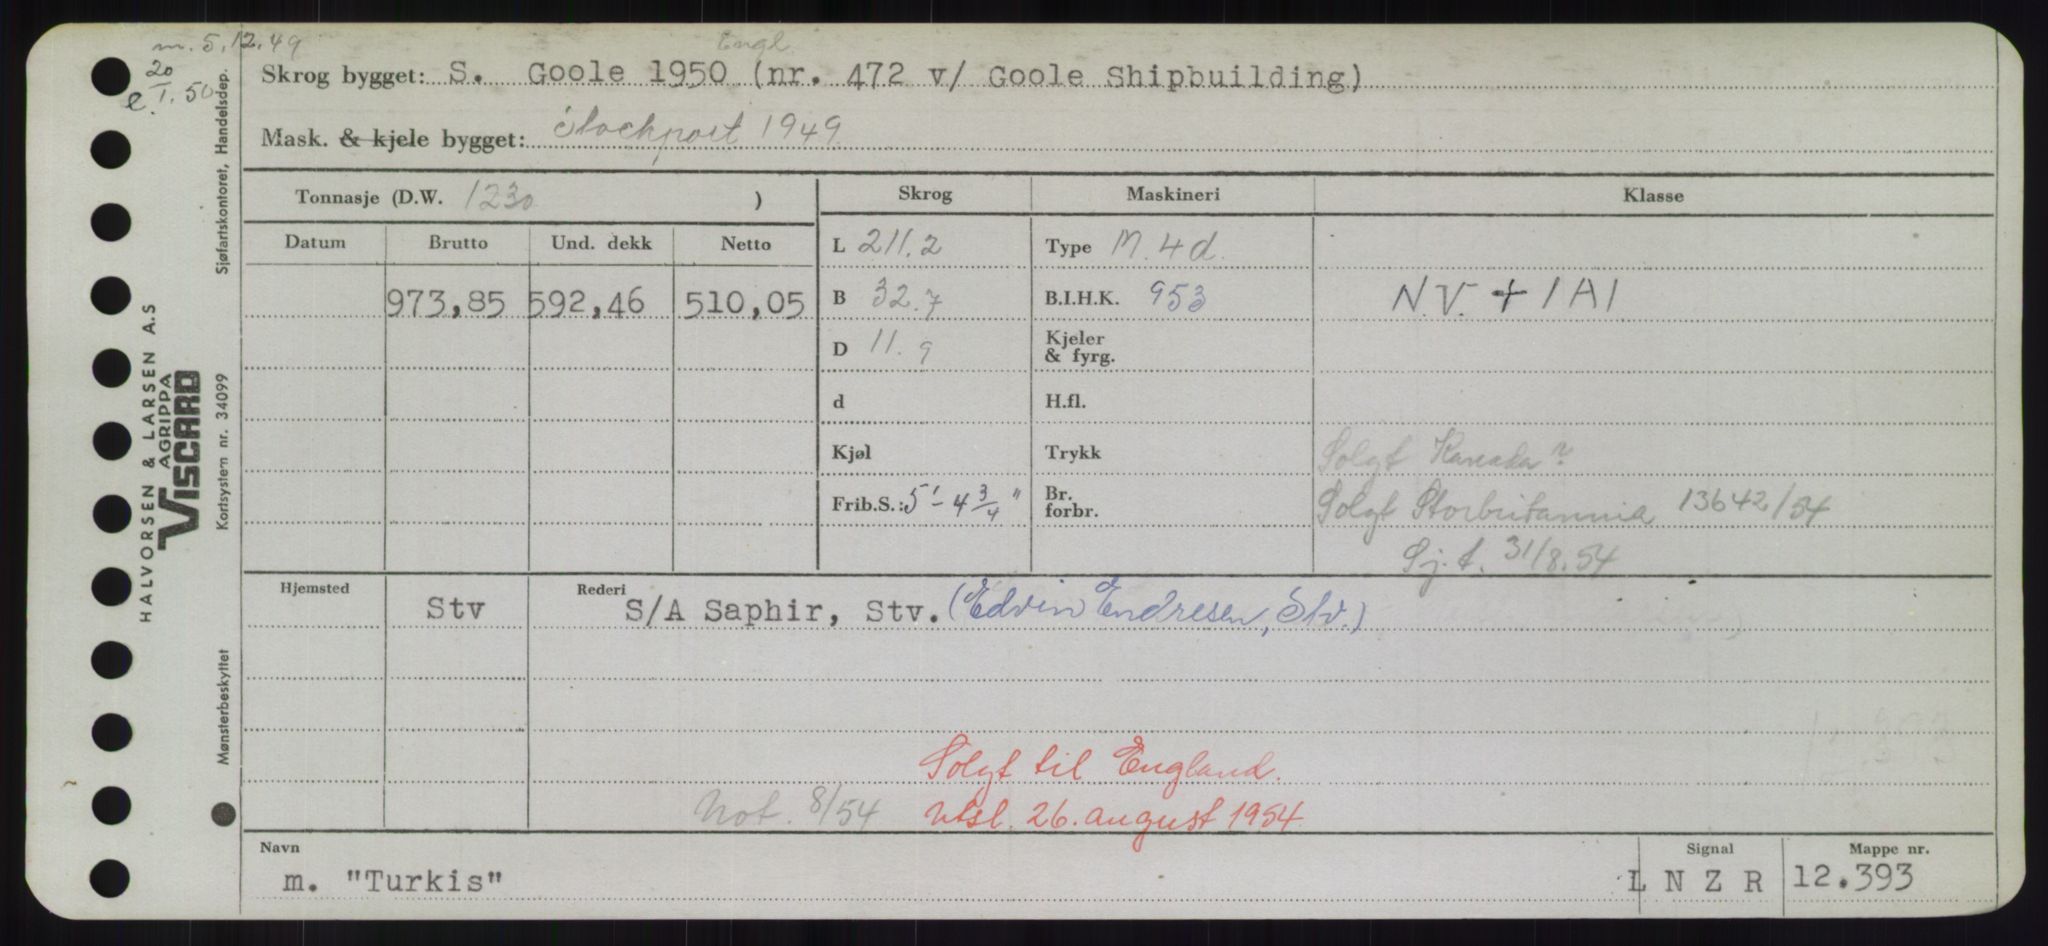 m. 5.12.49
20
e I. 50
Engl.
Skrog bygget: S. Goole 1950 (nr. 472 v/ Goole Shipbuilding)
Mask. & kjele bygget: Stockport 1949
Tonnasje (D.W. 1230 )
Skrog Maskineri Klasse
Datum Brutto Und. dekk Netto
L 211.2 Type M. 4 d.
973,85 592,46 510,05 B 32.7 B.I.H.K. 953 N.V. + 1A1
D 11.9 Kjeler & fyrg.
d H.fl.
Kjøl Trykk Solgt Kanada?
Frib.S.: 5' - 4 3/4" Br. forbr. Solgt Storbritannia 13642/54
Sj. f. 31/8.54
Hjemsted Rederi
Stv S/A Saphir, Stv. (Edvin Endresen, Stv.)
Solgt til England.
Not. 8/54 Utsl. 26. august 1954
Navn Signal Mappe nr.
m. "Turkis" L N Z R 12.393
Sjøfartskontoret, Handelsdep.
Kortsystem nr. 34099
Mønsterbeskyttet
HALVORSEN & LARSEN A.S
AGRIPPA
VISCARD